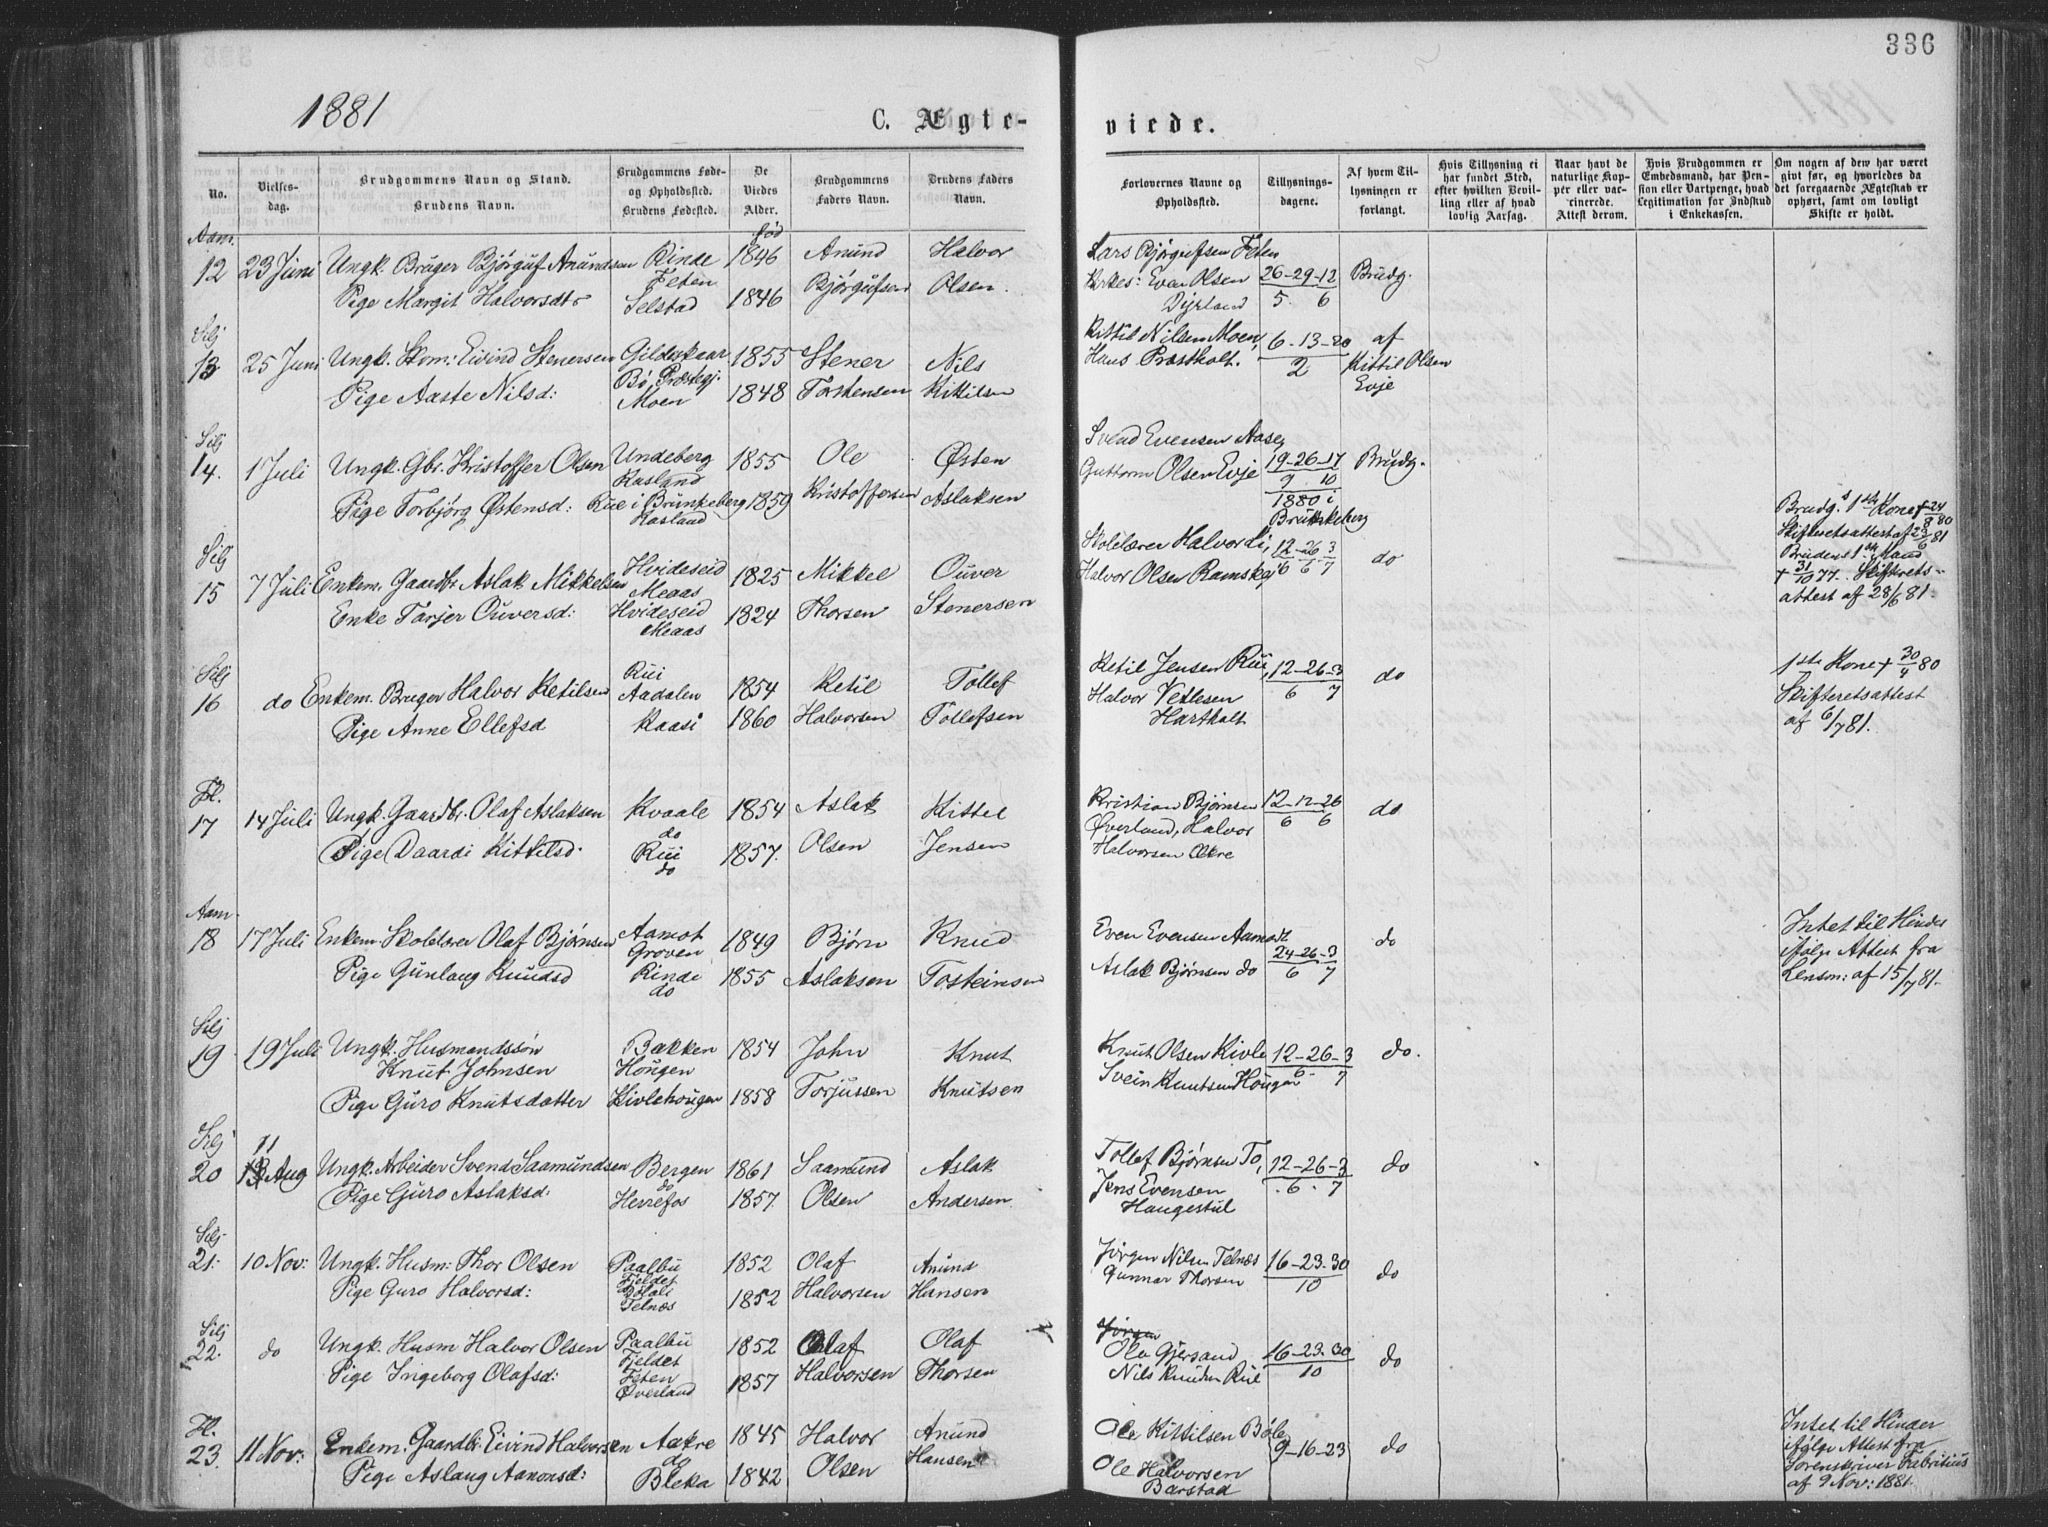 336
1881
C. Ægte-
viede.
No.
Vielses-
dag.
Brudgommens Navn og Stand.
Brudens Navn.
Brudgommens Føde-
og Opholdssted.
Brudens Fødested.
De
Viedes
Alder.
Brudgommens
Faders Navn.
Brudens Faders
Navn.
Forlovernes Navne og
Opholdssted.
Tillysnings-
dagene.
Af hvem Til-
lysningen er
forlangt.
Hvis Tillysning ei
har fundet Sted,
efter hvilken Bevil-
ling eller af hvad
lovlig Aarsag.
Naar havt de
naturlige Kop-
per eller vac-
cinerede.
Attest derom.
Hvis Brudgommen er
Embedsmand, har Pen-
sion eller Vartpenge, hvad
Legitimation for Indskud
i Enkekassen.
Om nogen af dem har været
givt før, og hvorledes da
det foregaaende Ægteskab er
ophørt, samt om lovligt
Skifte er holdt.
Aam.
12 23 Juni Ungk. Bruger Bjørguf Anundsen Rinde Feten fød 1846 Anund Bjørgufsen Halvor Olsen.
Pige Margit Halvorsdtr Selstad 1846
Lars Bjørgufsen Feten
Even Olsen Dyrland
26-29-12
5. 6
Brudg.
Silj
13 25 Juni Ungk. Skom: Eivind Stenersen Gildeskaar Bø Præstegj. 1855 Stener Torstensen Nils Kittilsen
Pige Aaste Nilsd: Moen 1848
Kittil Nilsen Moen,
Hans Præstholt.
6-13-20
2
af
Kittil Olsen
Evje
Silj
14. 1 Juli Ungk. Gbr. Kristoffer Olsen Undeberg Rasland 1855 Ole Kristoffersen Østen Aslaksen
Pige Torbjørg Østensd: Rue i Brunkeberg Rasland 1859
Svend Evensen Aase,
Guttorm Olsen Evje
19-26-17
9. 10
1880 i
Brunkeberg
Brudg.
Silj
15 7 Juli Enkem. Gaardbr. Aslak Mikkelsen Hvideseid Meaas 1825 Mikkel Thorsen Ouver Stenersen
Enke Tarjer Ouversd: Hvideseid Meaas 1824
Skolelærer Halvor Li,
Halvor Olsen Ramskej
12-26-3
6 6 7
do
Brudg.s 1ste Kone + 24/8 80
Skifteretsattest af 23/6 81
Brudens 1ste Mand
+ 31/10 77. Skifterets-
attest af 28/6 81.
Silj
16 do Enkem. Bruger Halvor Ketilsen Rui Aadalen 1854 Ketil Halvorsen Tollef Tollefsen
Pige Anne Ellefsd Kaasi 1860
Ketil Jensen Rui,
Halvor Vetlesen
Hartholt
12-26-3
6 7
do
1ste Kone + 30/4 80
Skifteretsattest
af 6/7 81.
Fl.
17 14 Juli Ungk. Gaardbr. Olaf Aslaksen Kvaale do 1854 Aslak Olsen Kittel Jensen
Pige Daardi Kittilsd. Rui do 1857.
Kristian Bjørnsen
Øverland, Halvor
Halvorsen Økre
12-12-26
6 6
do
Aam.
18 17 Juli Enkem. Skolelærer Olaf Bjørnsen Aamot Groven 1849 Bjørn Aslaksen Knud Tosteinsen
Pige Gunlaug Knudsd Rinde do 1855
Even Evensen Aamodt
Aslak Bjørnsen do
24-26-3
6 7
do
Intet til Hinder
ifølge Attest fra
Lensm: af 15/7 81.
Silj
19 19 Juli Ungk. Husmandssøn
Knut Johnsen Bakken Hougen 1854 John Torjussen Knut Knutsen
Pige Guro Knutsdatter Kivlehougen 1858
Knut Olsen Kivle
Svein Knutsen Hougen
12-26-3
6 7
do.
Silj
20 11 Aug Ungk. Arbeider Svend Saamundsen Bergen do 1861 Saamund Olsen Aslak Andersen
Pige Guro Aslaksd: Herrefos 1857.
Tollef Bjørnsen To,
Jens Evensen
Haugestul
12-26-3
6. 7
do
Silj
21. 10 Nov: Ungk. Husm: Thor Olsen Paalbu Fjeldet 1852 Olaf Halvorsen Anund Hansen
Pige Guro Halvorsd: Telnæs 1852
Jørgen Nilsen Telnæs
Gunnar Thorsen
16-23-30
10
do
Silj
22. do Ungk. Husm Halvor Olsen Paalbu Fjeldet 1852 Olaf Halvorsen Olaf Thorsen
Pige Ingeborg Olafsd: Feten Øverland 1857
Jørgen
Ole Gjersund
Nils Knudsen Rui
16-23-30
10
do
Fl.
23. 11 Nov: Enkem. Gaardbr Eivind Halvorsen Aakre do 1845 Halvor Olsen Anund Hansen
Pige Aslaug Aanonsd: Bleka 1842
Ole Kittilsen Bøle
Ole Halvorsen
Barstad
9-16-23
do
Intet til Hinder
ifølge Attest fra
Sorenskriver Fabritius
af 9 Nov: 1881.